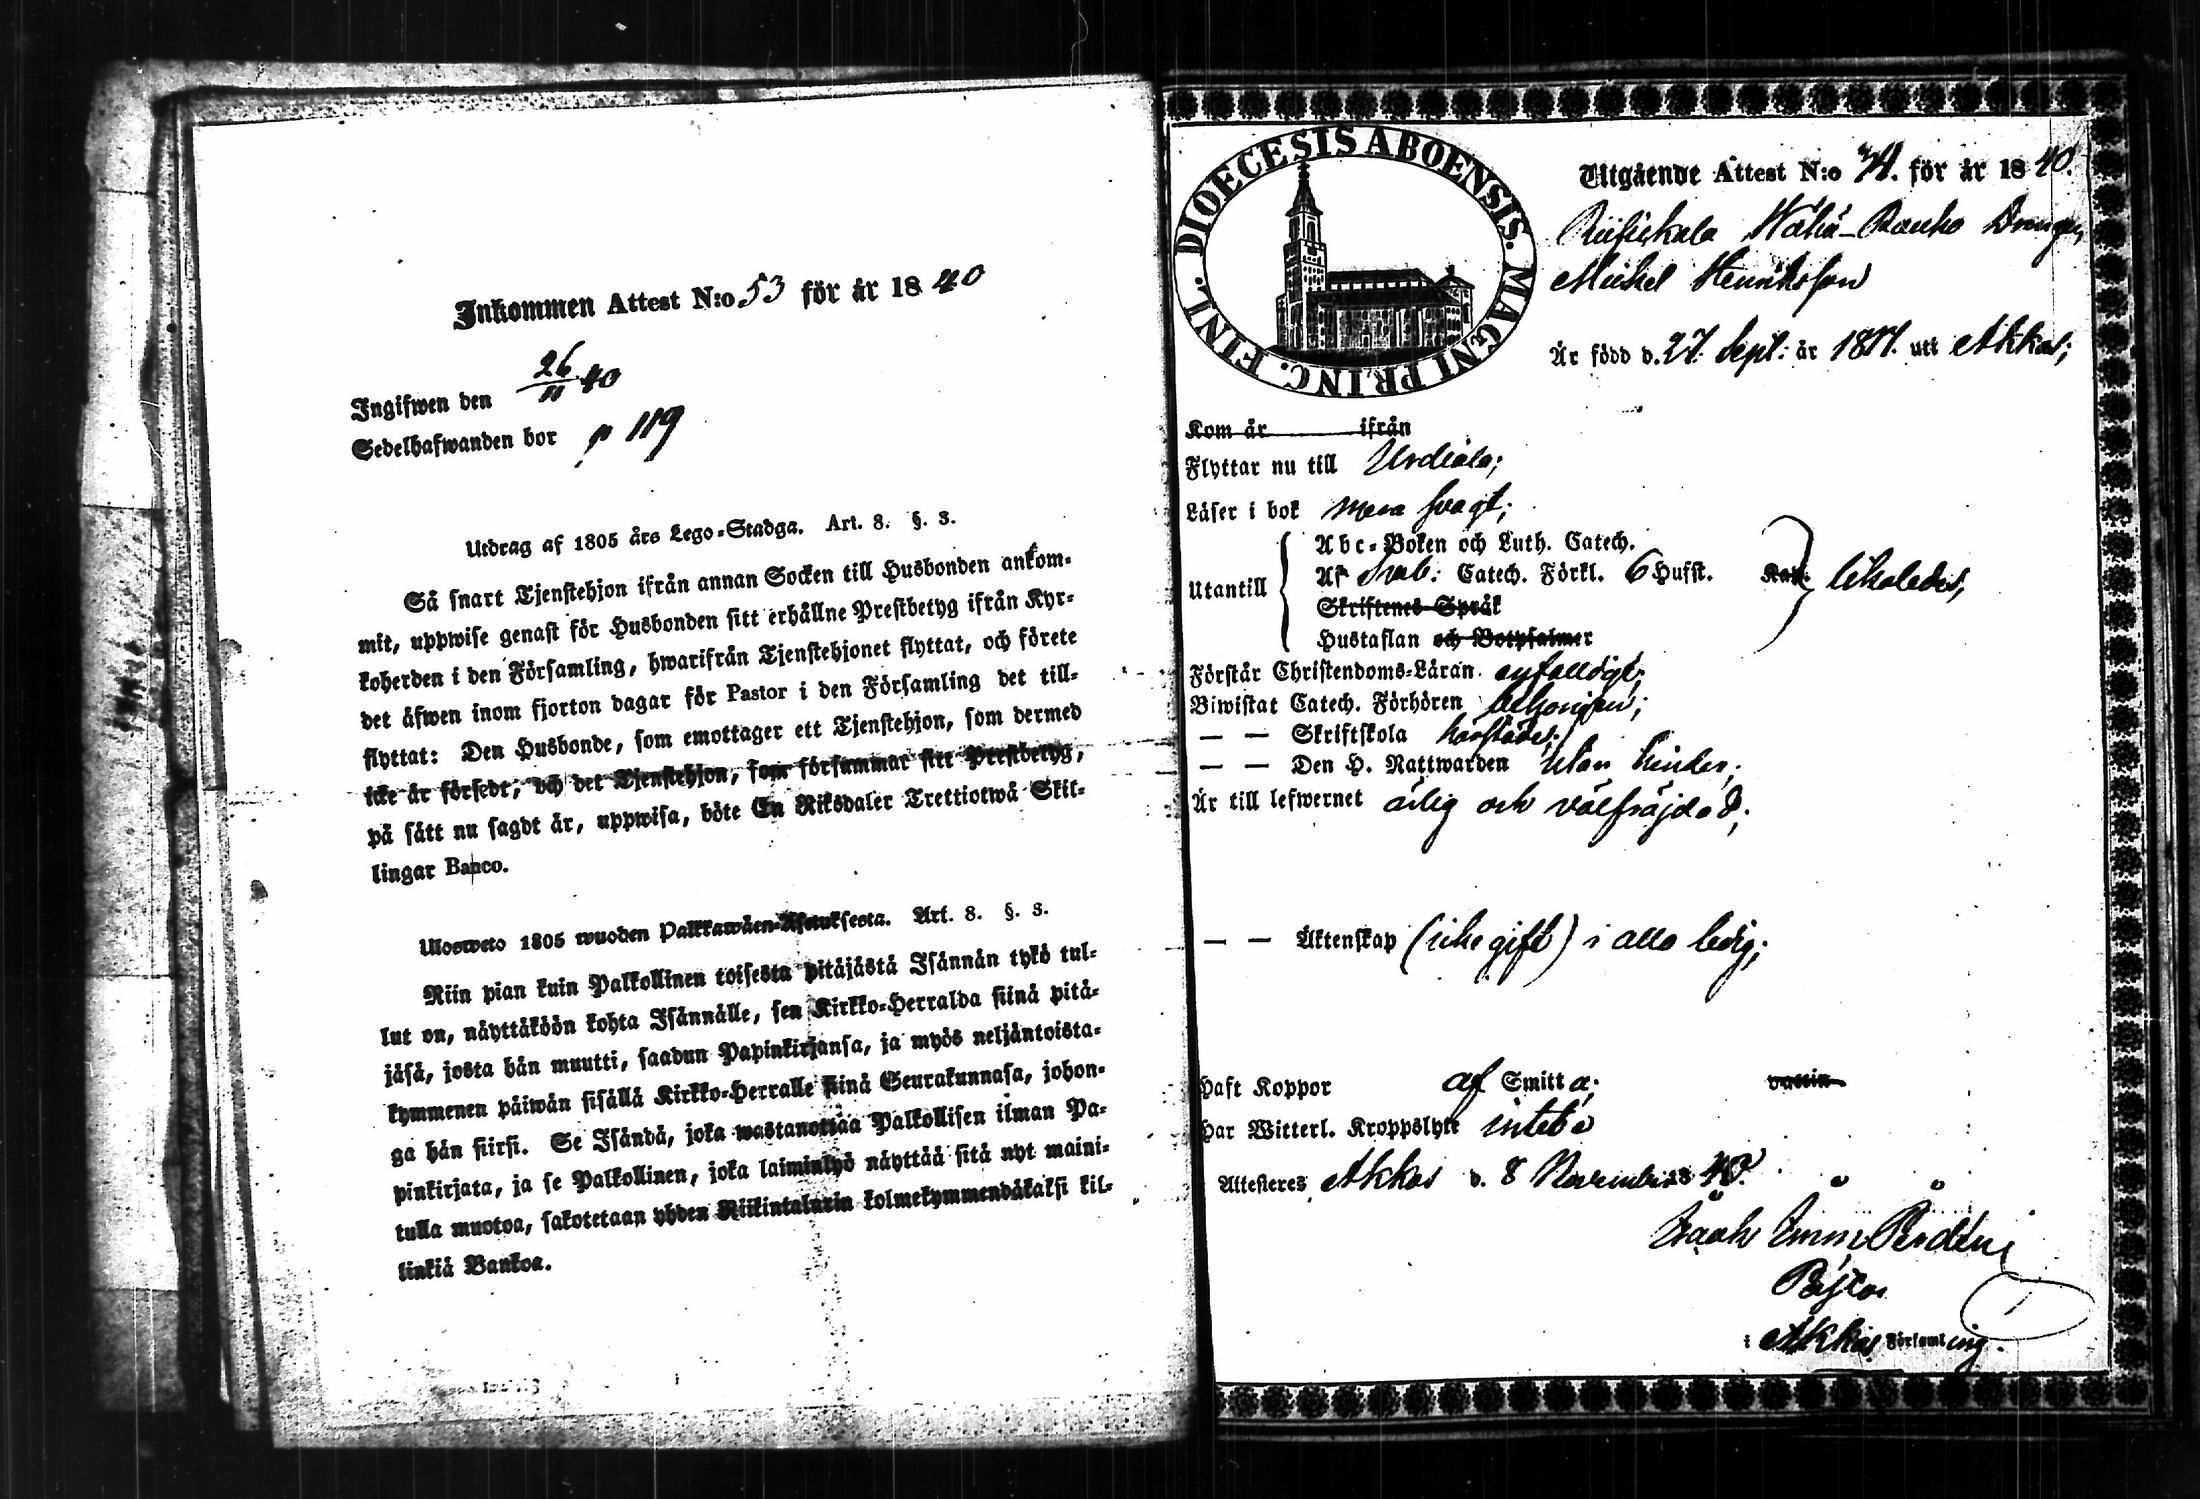 Inkommen Attest N:o 53 för år 1840
Ingifwen den 26/11 40
Sedelhafwanden bor p 119
Utdrag af 1805 års Lego-Stadga. Art. 8. §. 3.
Så snart Tjenstehjon ifrån annan Socken till Husbonden ankom-
mit, uppwise genast för Husbonden sitt erhållne Prestbetyg ifrån Kyr-
koherden i den Församling, hwarifrån Tjenstehjonet flyttat, och förete
det äfwen inom fjorton dagar för Pastor i den Församling det till-
flyttat: Den Husbonde, som emottager ett Tjenstehjon, som dermed
icke är försedt, och det Tjenstehjon, som försummar sitt Prestbetyg,
på sätt nu sagdt är, uppwisa, böte En Riksdaler Trettiotwå Skil-
lingar Banco.
Ulosweto 1805 wuoden Palkkawäen-Asetuksesta. Art. 8. §. 3.
Niin pian kuin Palkollinen toisesta pitäjästä Isännän tykö tul-
lut on, näyttäköön kohta Isännälle, sen Kirkko-Herralda siinä pitä-
jäsä, josta hän muutti, saadun Papinkirjansa, ja myös neljäntoista-
kymmenen päiwän sisällä Kirkko-Herralle siinä Seurakunnasa, johon-
ga hän siirsi. Se Isändä, joka wastanottaa Palkollisen ilman Pa-
pinkirjata, ja se Palkollinen, joka laiminlyö näyttää sitä nyt maini-
tulla muotoa, sakotetaan yhden Riikintalarin kolmekymmendäkaksi kil-
linkiä Bankoa.
DIOECESIS ABOENSIS. MAGNI PRINC. FINL.
Utgående Attest N:o 74. för år 1840.
Wähä-Rauho Drengen
Michel Henriksson
Är född d. 27. Sept: år 1817. uti Akkas;
Kom år ifrån
Flyttar nu till Urdiala;
Läser i bok mera svagt;
Utantill
Abc-Boken och Luth. Catech.
Af Sveb: Catech. Förkl. 6 Hufst. likaledes,
Skriftenes Språk
Hustaflan och Botpsalmer
Förstår Christendoms-Läran enfaldigt;
Biwistat Catech. Förhören behörigen;
— — Skriftskola härstädes;
— — Den H. Nattwarden utan hinder;
Är till lefwernet ärlig och välfräjdad;
— — Äktenskap (icke gift) i allo ledig;
Haft Koppor af Smitta;
Har Witterl. Kroppslyte inteba
Attesteres Akkas d. 8 November 1840.
Isaak Imm
Pastor
i Akkas Församling.